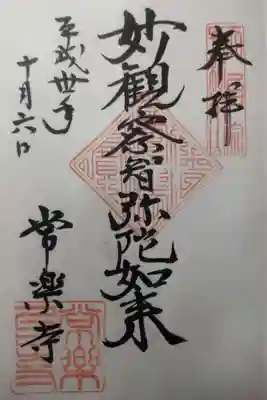 奉拝
妙観察智弥陀如来
平成卅年
十月六日
常楽寺